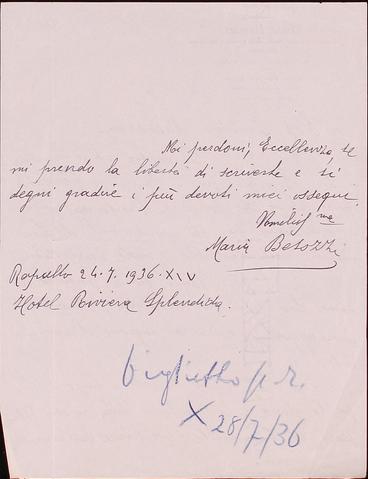 Mi perdoni, Eccellenza, se
mi prendo la libertà di scriverLe e si
degni gradire i più devoti miei ossequi.
Maria Belozzi
Rapallo 24.7.1936.XIV
Hotel Riviera Splendida.
biglietto p. r.
X 28/7/36